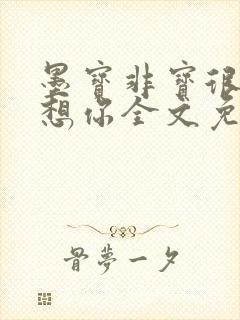 墨寶非寶很
想你全文免
骨夢一夕